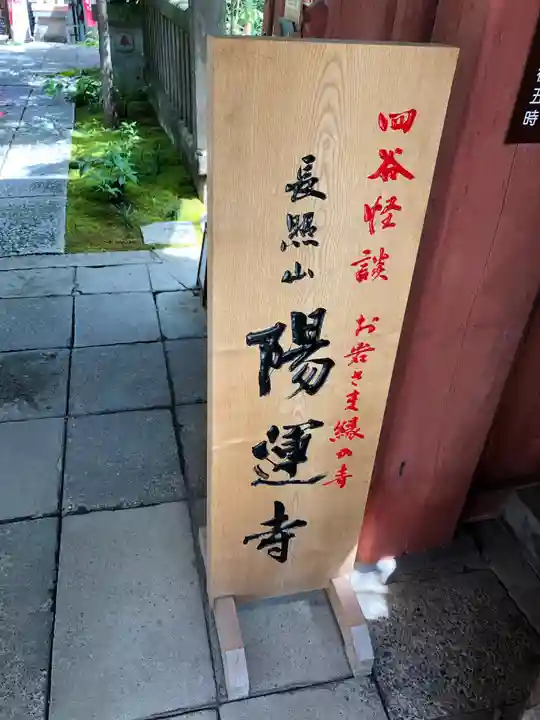 四谷怪談 お岩さま縁の寺
長照山
陽運寺
五時